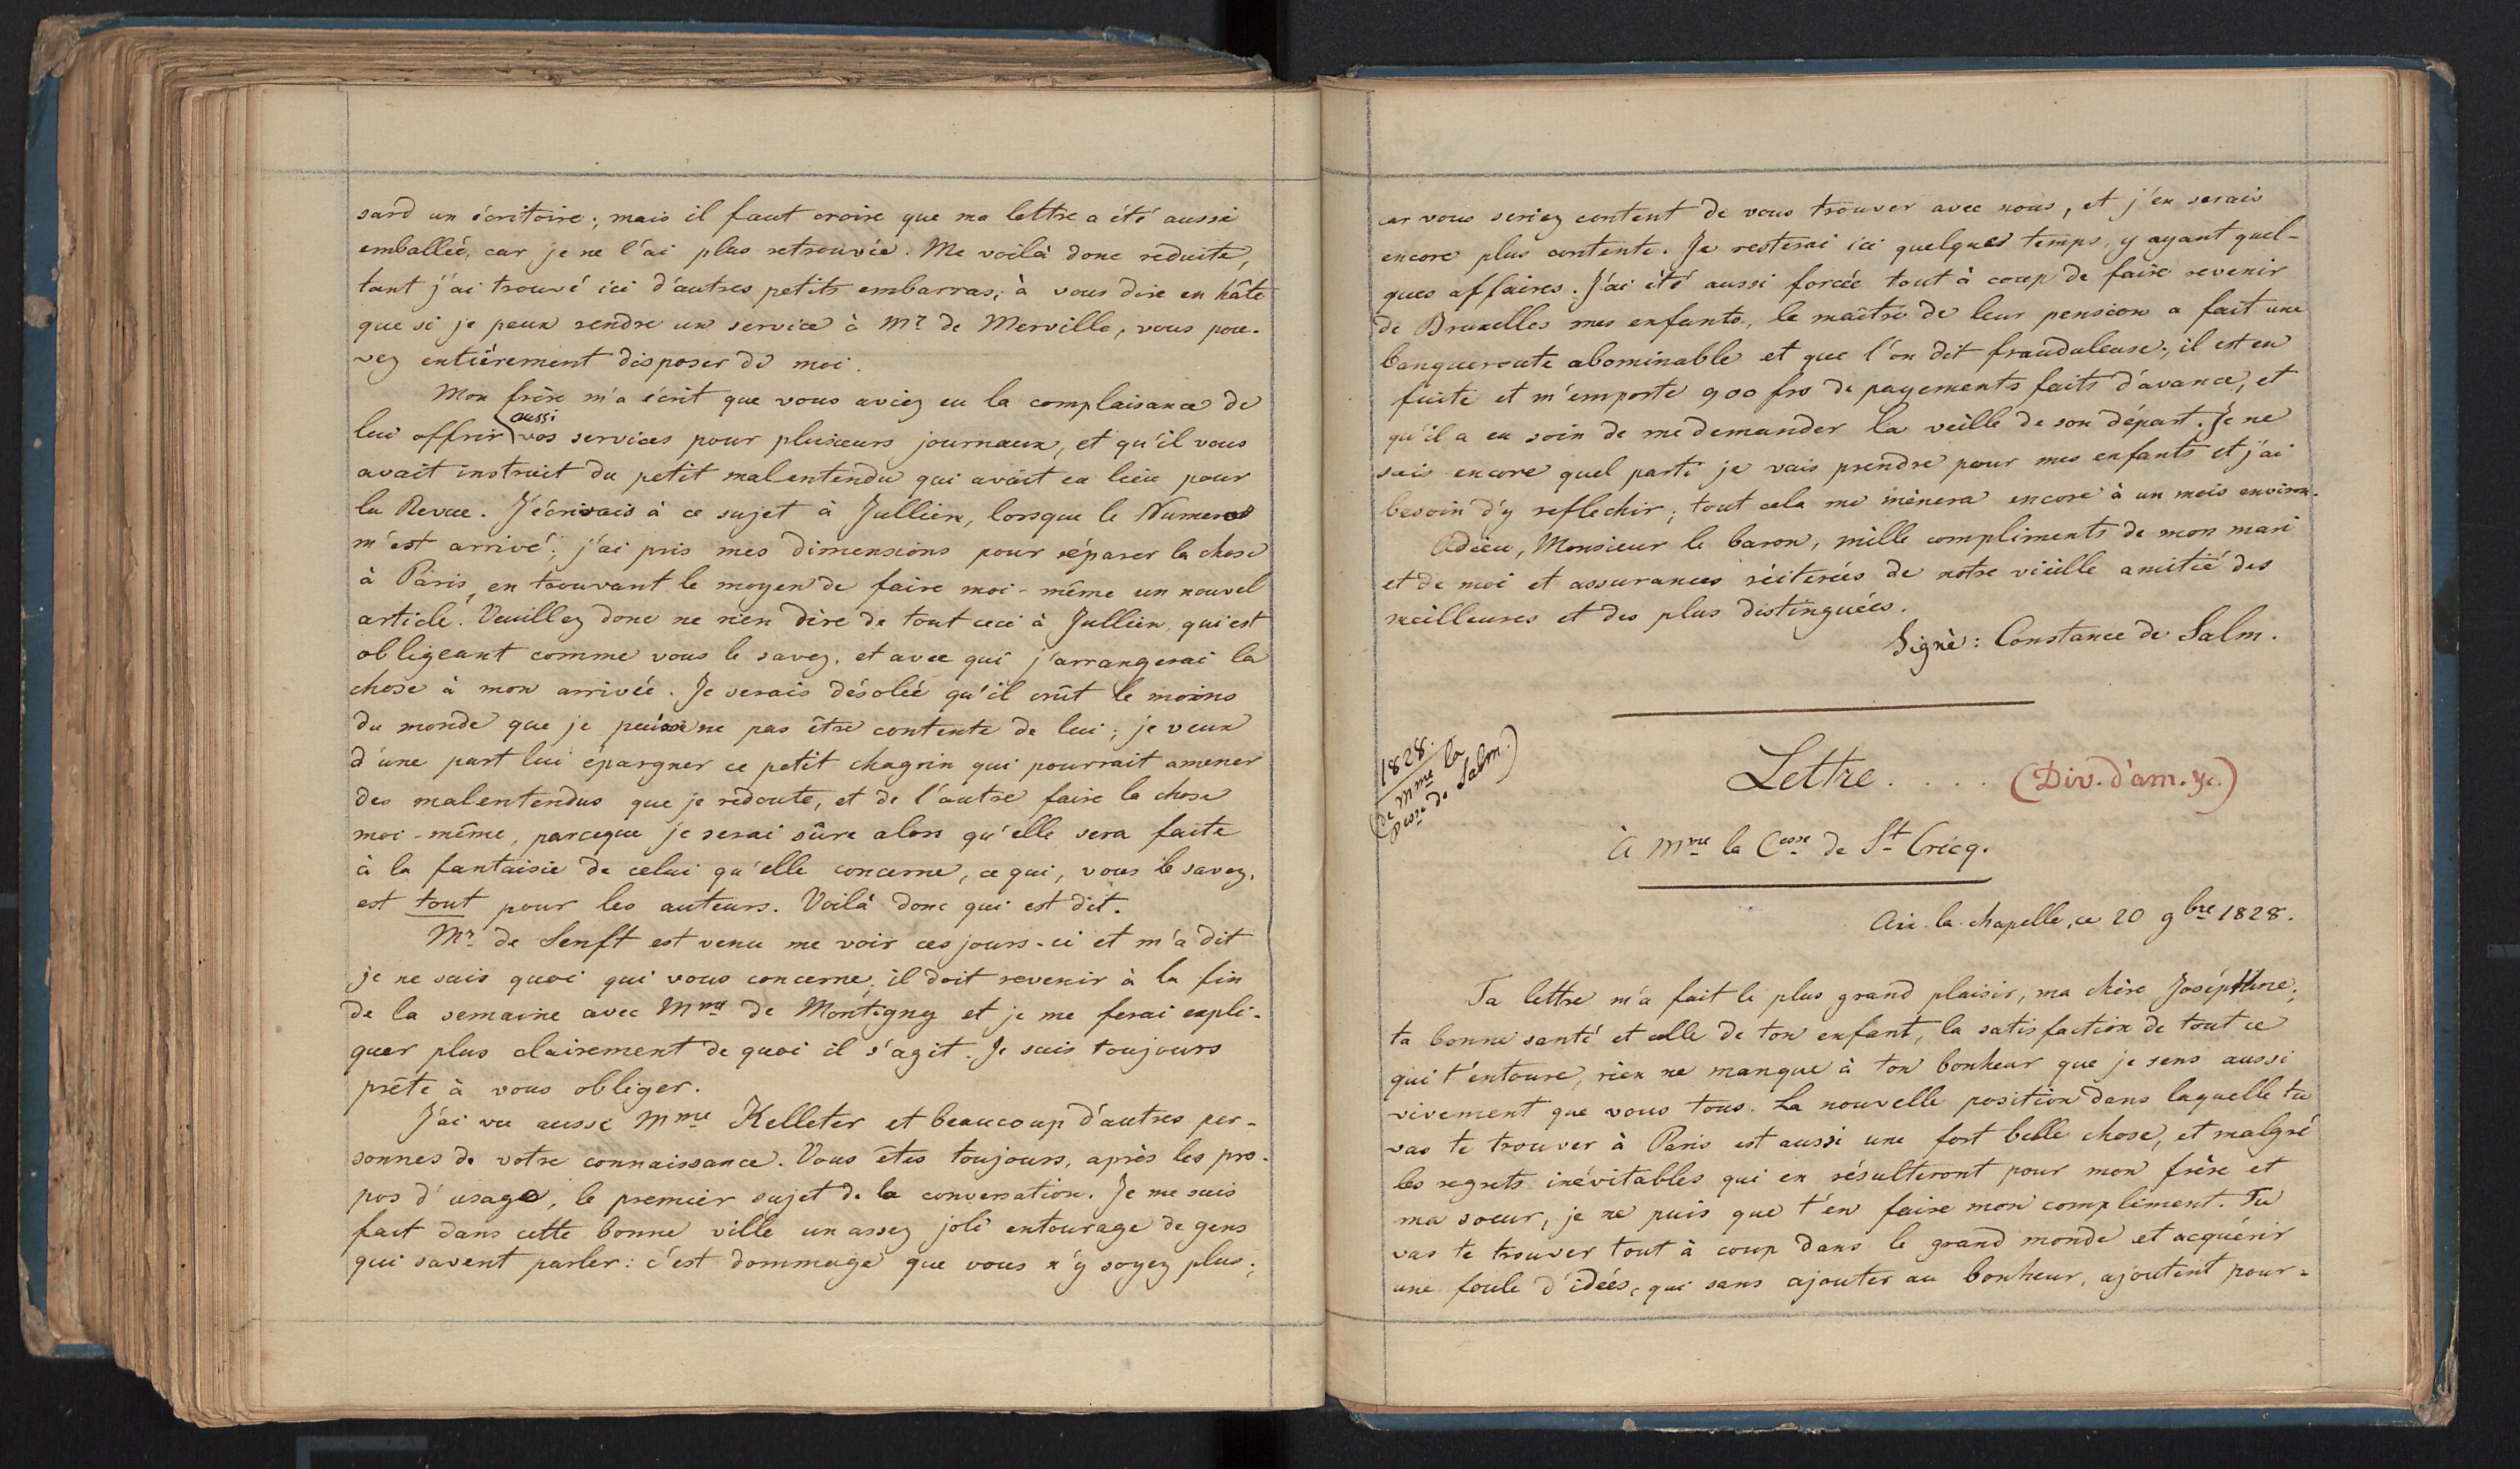 sard un écritoire; mais il faut croire que ma lettre a été aussi
emballée, car je ne l'ai plus retrouvée. Me voilà donc réduite,
tant j'ai trouvé ici d'autres petits embarras, à vous dire en hâte
que si je peux rendre un service à Mr. de Merville, vous pou-
vez entièrement disposer de moi.
Mon frère m'a écrit que vous aviez eu la complaisance de
lui offrir aussi vos services pour plusieurs journaux, et qu'il vous
avait instruit du petit malentendu qui avait eu lieu pour
la Revue. J'écrivais à ce sujet à Jullien, lorsque le Numero
m'est arrivé; j'ai pris mes dimensions pour réparer la chose
à Paris, en trouvant le moyen de faire moi-même un nouvel
article. Veuillez donc ne rien dire de tout ceci à Jullien, qui est
obligeant comme vous le savez, et avec qui j'arrangerai la
chose à mon arrivée. Je serais désolée qu'il crût le moins
du monde que je puisse ne pas être contente de lui; je veux
d'une part lui épargner ce petit chagrin qui pourrait amener
des malentendus que je redoute, et de l'autre faire la chose
moi-même, parceque je serai sûre alors qu'elle sera faite
à la fantaisie de celui qu'elle concerne, ce qui, vous le savez,
est tout pour les auteurs. Voilà donc qui est dit.
Mr. de Senft est venu me voir ces jours-ci et m'a dit
je ne sais quoi qui vous concerne; il doit revenir à la fin
de la semaine avec Mme de Montigny et je me ferai expli-
quer plus clairement de quoi il s'agit. Je suis toujours
prête à vous obliger.
J'ai vu aussi Mme Kelleter et beaucoup d'autres per-
sonnes de votre connaissance. Vous êtes toujours, après les pro-
pos d'usage, le premier sujet de la conversation. Je me suis
fait dans cette bonne ville un assez joli entourage de gens
qui savent parler: c'est dommage que vous n'y soyez plus;
car vous seriez content de vous trouver avec nous, et j'en serais
encore plus contente. Je resterai ici quelques temps, y ayant quel-
ques affaires. J'ai été aussi forcée tout à coup de faire revenir
de Bruxelles mes enfants, le maître de leur pension a fait une
banqueroute abominable et que l'on dit frauduleuse; il est en
fuite et m'emporte 900 frs de payements faits d'avance, et
qu'il a eu soin de me demander la veille de son départ. Je ne
sais encore quel parti je vais prendre pour mes enfants et j'ai
besoin d'y reflechir; tout cela me mènera encore à un mois environ.
Adieu, Monsieur le baron, mille compliments de mon mari
et de moi et assurances réiterées de notre vieille amitié des
meilleures et des plus distinguées.
Signé: Constance de Salm.
1828.
(de Mme la
Pesse de Salm.)
Lettre.... (Div. d'am. &c.)
À Mme la Cesse de St Cricq.
Aix-la-chapelle, ce 20 9bre 1828.
Ta lettre m'a fait le plus grand plaisir, ma chère Joséphine;
ta bonne santé et celle de ton enfant, la satisfaction de tout ce
qui t'entoure, rien ne manque à ton bonheur que je sens aussi
vivement que vous tous. La nouvelle position dans laquelle tu
vas te trouver à Paris est aussi une fort belle chose, et malgré
les regrets inévitables qui en résulteront pour mon frère et
ma soeur, je ne puis que t'en faire mon compliment. Tu
vas te trouver tout à coup dans le grand monde et acquérir
une foule d'idées, qui sans ajouter au bonheur, ajoutent pour-